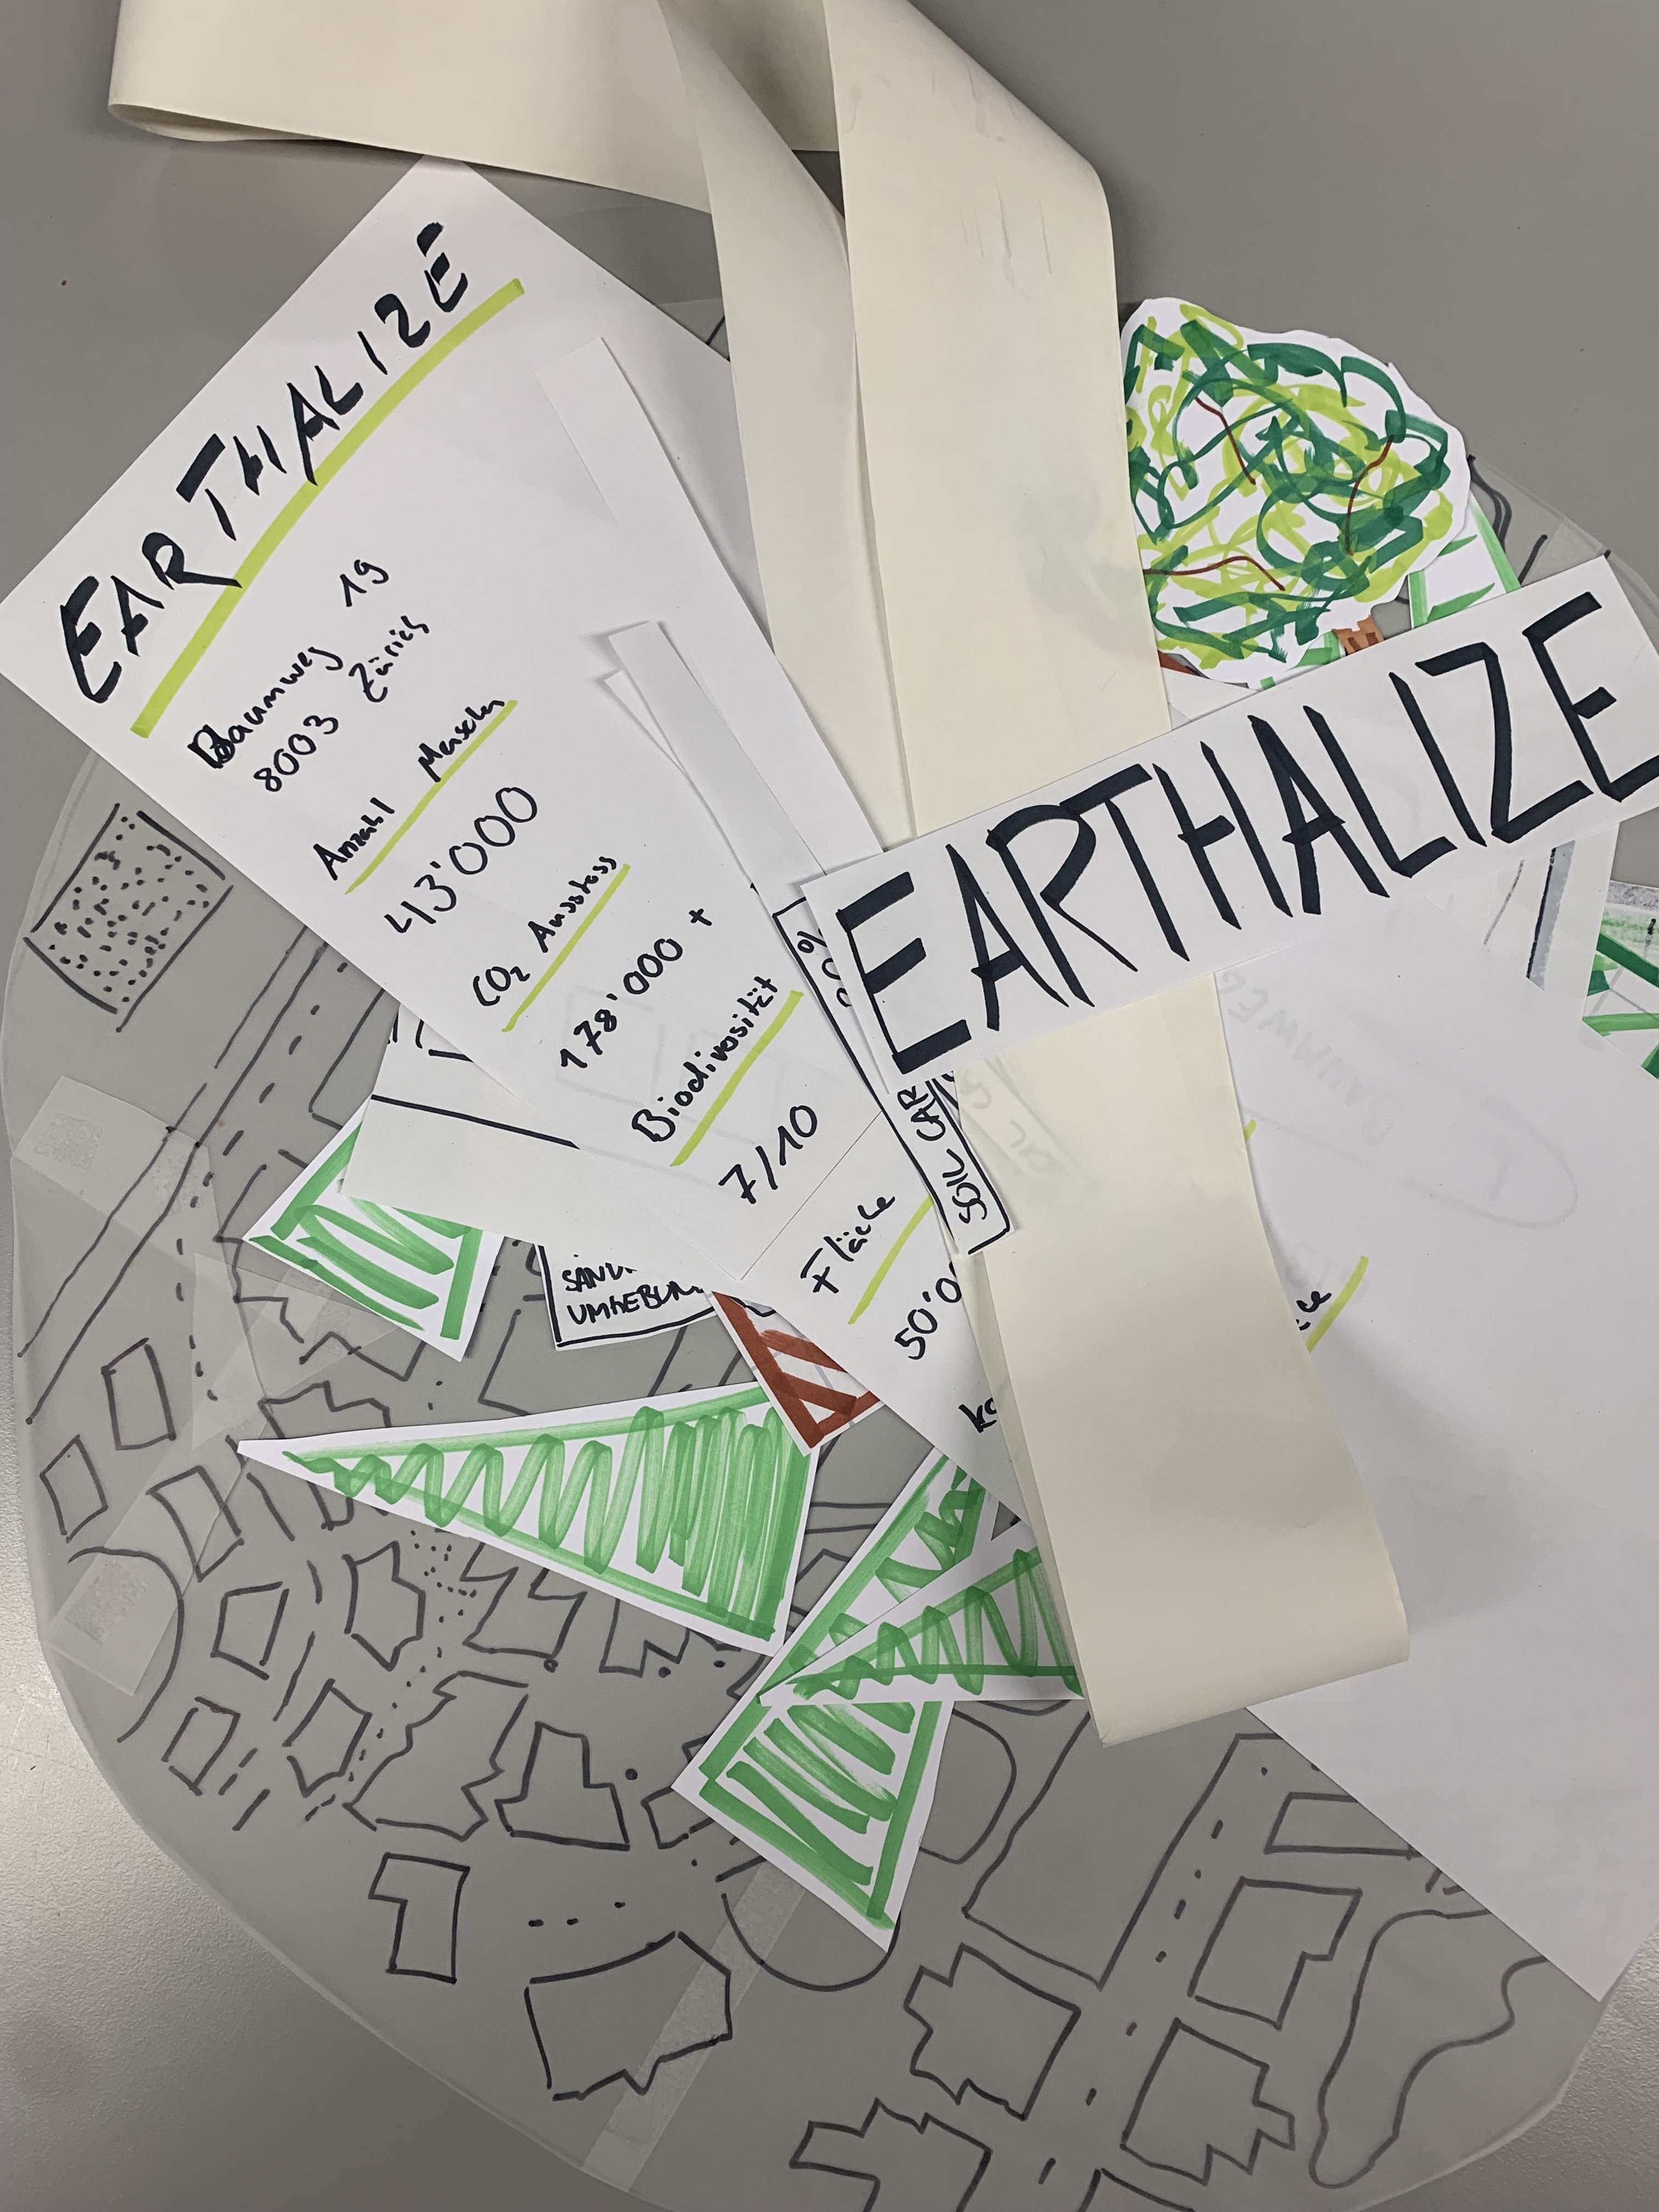 EARTHALIZE
Baumweg 19
8003 Zürich
Anzahl Menschen
43'000
CO2 Ausstoss
178'000 +
Biodiversität
7/10
Fläche
50'0
EARTHALIZE
SOIL CAR
UMGEBUN
BAUMWEG